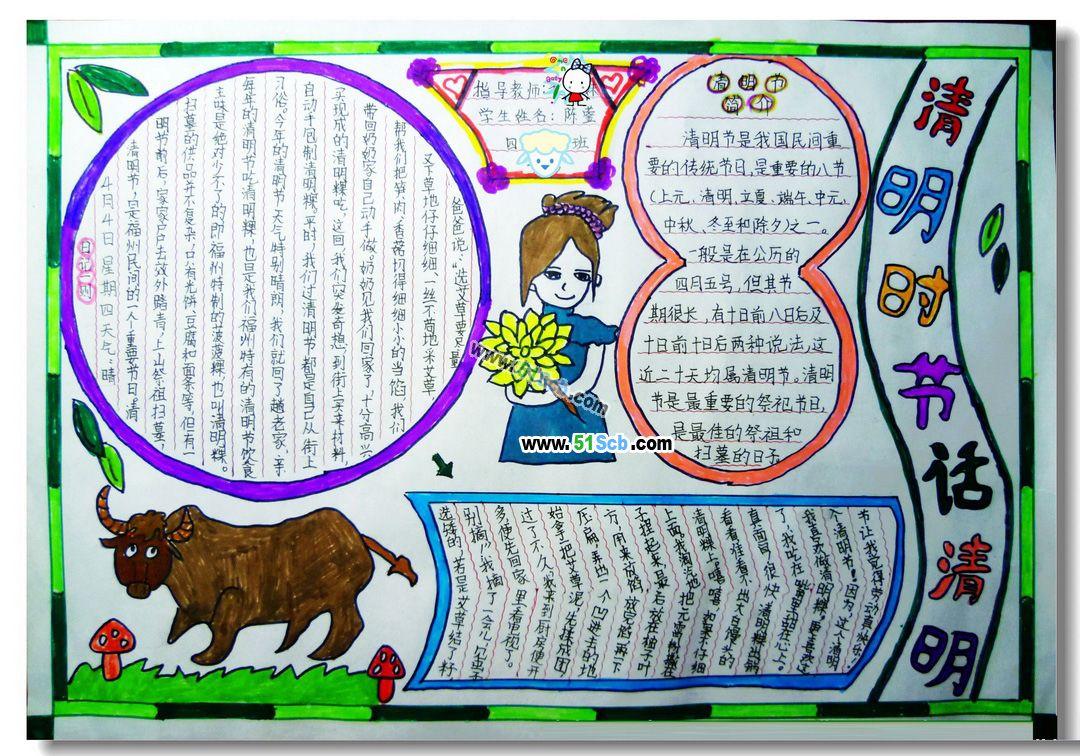 清明时节话清明
清明节
简介
清明节是我国民间重
要的传统节日,是重要的八节
(上元、清明、立夏、端午、中元、
中秋、冬至和除夕)之一。
一般是在公历的
四月五号,但其节
期很长,有十日前八日后及
十日前十日后两种说法,这
近二十天均属清明节。清明
节是最重要的祭祀节日,
是最佳的祭祖和
扫墓的日子
指导教师:
学生姓名:陈
四 班
日记一则
4月4日 星期四 天气:晴
清明节,是福州民间的一个重要节日。清
明节前后,家家户户去郊外踏青,上山祭祖扫墓,
扫墓的供品并不复杂,只有光饼、豆腐和面条等,但有一
主味是绝对少不了的即福州特制的菠菠粿,也叫清明粿。
每年的清明节吃清明粿,也是我们福州特有的清明节饮食
习俗。今年的清明节天气特别晴朗,我们就回了趟老家,亲
自动手包制清明粿。平时,我们过清明节都是自己从街上
买现成的清明粿吃,这回我们突发奇想,到街上买来材料,
带回奶奶家自己动手做。奶奶见我们回家了,十分高兴
帮我们把笋肉、香菇切得细细小小的当馅,我们
又下草地仔仔细细、一丝不苟地采艾草
爸爸说:“选艾草要尽量
选矮的,若是艾草结了籽
别摘。”我摘了一会儿,见虫子
多便先回家里看电视了。
过了不久,我来到厨房便开
始拿了把艾草泥,先揉成团
压扁,弄出一个凹进去的地
方,用来放馅,放完馅再一下
子捏起来,最后放在粽子叶
上面,我淘气地把
清明粿。嘻嘻,如果不仔细
看看挂看不出大白馒头的
真面目。很快,清明粿出锅
了,我吃在嘴里甜在心上。
我喜欢做清明粿,更喜欢过
个清明节!因为这个清明
节让我觉得劳动真快乐!
www.51Scb.com